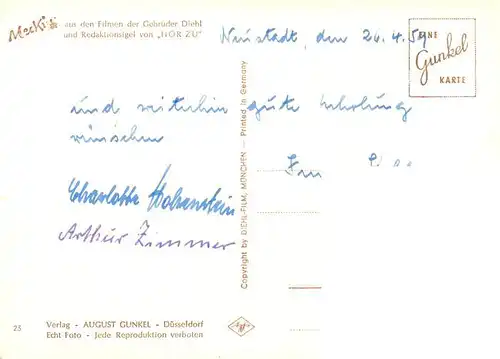 Mecki aus den Filmen der Gebrüder Diehl
und Redaktionsigel von „HÖR ZU"
Neustadt, den 26.4.59
EINE
Gunkel
KARTE
und weiterhin gute Erholung
wünschen
Charlotte Hohenstein
Arthur Zimmer
Copyright by DIEHL-FILM, MÜNCHEN — Printed in Germany
25
Verlag - AUGUST GUNKEL - Düsseldorf
Echt Foto - Jede Reproduktion verboten